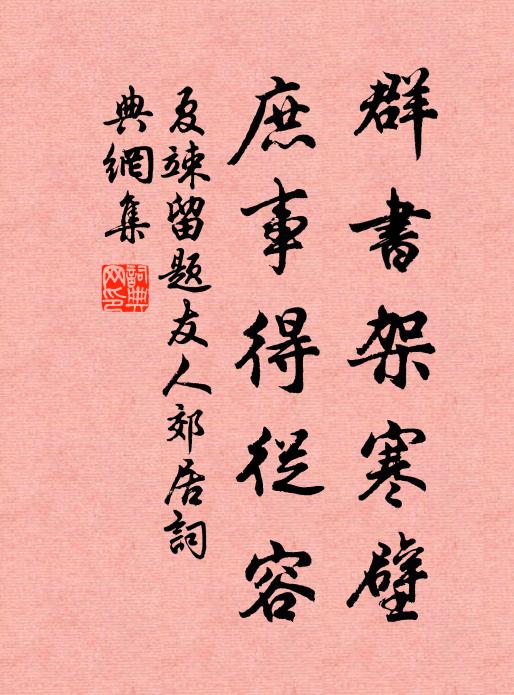 群書架寒壁
庶事得從容
夏竦留題友人郊居詞
典網集
詞典
网印